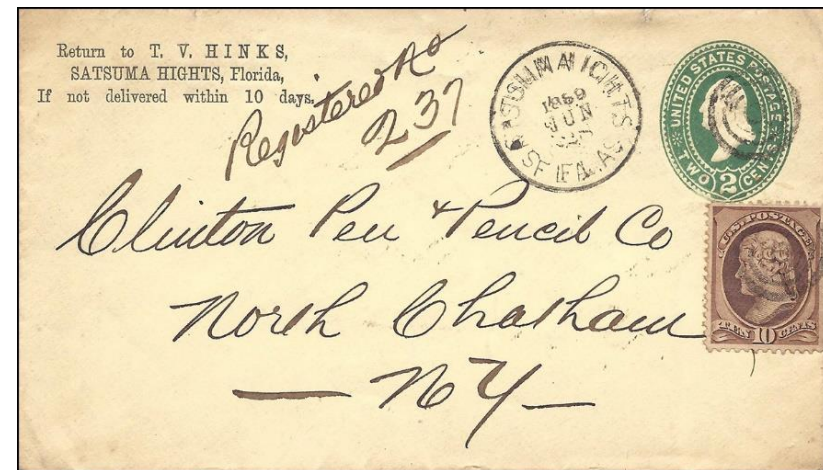 Return to T. V. HINKS,
SATSUMA HIGHTS, Florida,
If not delivered within 10 days.
Registered No
237
SATSUMA HIGHTS
1889
JUN
FLA.
UNITED STATES POSTAGE
TWO 2 CENTS
U.S. POSTAGE
TEN 10 CENTS
Clinton Pen & Pencil Co
North Chatham
NY